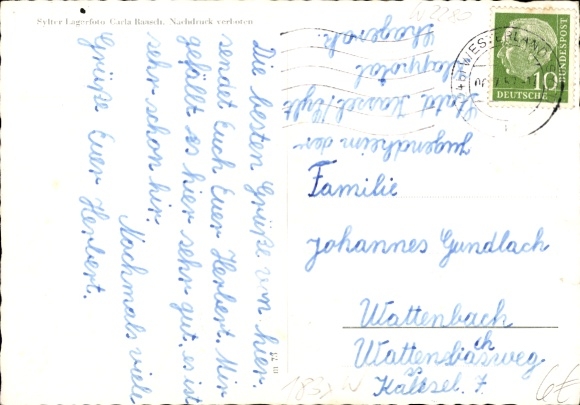 Sylter Lagerfoto Carla Raasch. Nachdruck verboten
Die besten Grüße von hier
sendet Euch Euer Herbert. Mir
gefällt es hier sehr gut, es ist
sehr schön hir.
Nochmals viele
Grüße Euer Herbert.
Jugendheim der
Stadt Kassel/Sylt
WESTERLAND
10
DEUTSCHE
BUNDESPOST
Familie
Johannes Gundlach
Wattenbach
Wattenbachweg.
Kassel. 7
m 74
6€